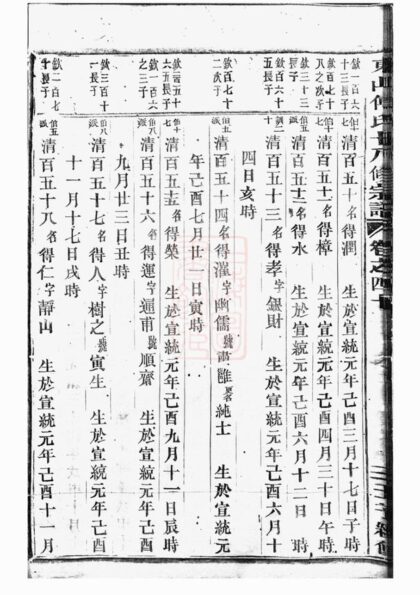 欽一百六
十三長子
清百五十名得潤 生於宣統元年己酉三月十七日子時
欽百七十
八之次子
清百五十一名得樟 生於宣統元年己酉四月三十日午時
欽三十三
長子
清百五十二名得水 生於宣統元年己酉六月十二日 時
欽百六十
五長子
清百五十三名得孝字銀財 生於宣統元年己酉六月十
四日亥時
欽百七十
二次子
清百五十四名得漢字幽儒號 純士 生於宣統元
年己酉七月廿一日寅時
六五長子
清百五十五名得榮 生於宣統元年己酉九月十一日辰時
欽一百六
十之三子
清百五十六名得運字通甫號順齋 生於宣統元年己酉
九月廿三日丑時
欽三百十
一長子
清百五十七名得人字樹之號寅生 生於宣統元年己酉
十一月十七日戌時
欽二百七
十長子
清百五十八名得仁字靜山 生於宣統元年己酉十一月
修宗譜 卷之四十